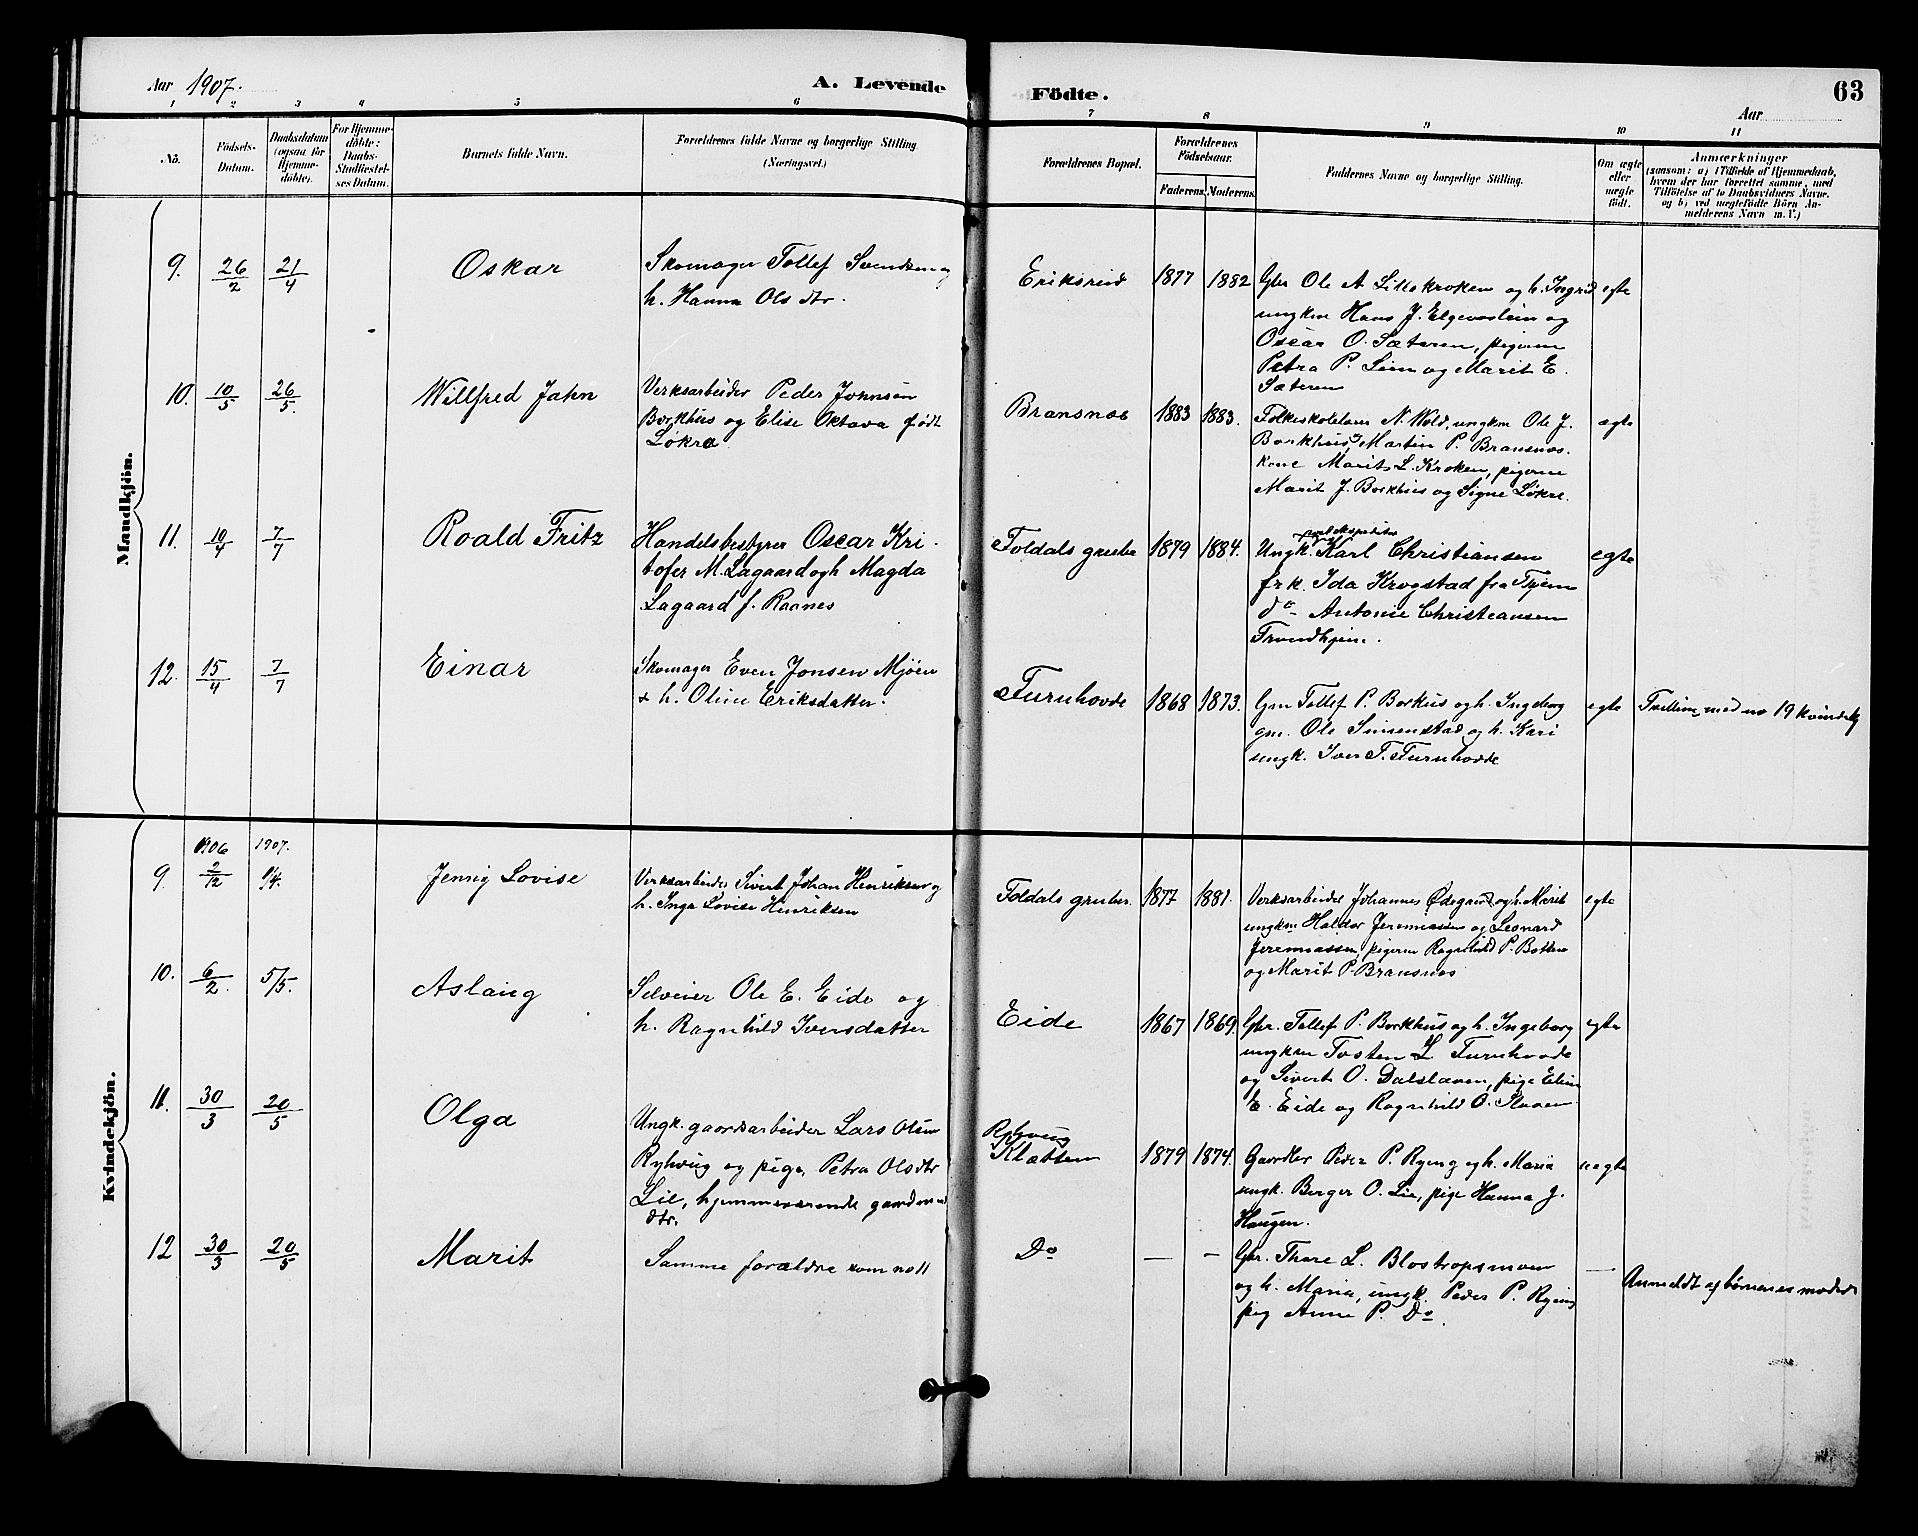 Aar 1907. A. Levende Födte. 63
Aar
1 2 3 4 5 6 7 8 9 10 11
No. Födsels-Datum. Daabsdatum (ogsaa for Hjemmedöbte). For Hjemmedöbte: Daabs-Stadfæstelses Datum. Barnets fulde Navn. Forældrenes fulde Navne og borgerlige Stilling. (Næringsvei.) Forældrenes Bopæl. Forældrenes Födselsaar. Faderens. Moderens. Faddernes Navne og borgerlige Stilling. Om ægte eller uægte födt. Anmærkninger (saasom: a) i Tilfælde af Hjemmedaab, hvem der har forrettet samme, med Tilföielse af to Daabsvidners Navne, og b) ved uægtefödte Börn Anmelderens Navn m. V.)
Mandkjön.
9. 26/2 21/4 Oskar Skomager Tollef Svendsen og
h. Hanna Olsdtr.
Eriksrud 1877 1882 Gbr Ole A Lillekroken og h. Ingrid egte
ungkm Hans J. Elgevaslien og
Oscar O. Sæteren, pigerne
Petra P. Lien og Marit E.
Sæteren
10. 10/5 26/5. Willfred Jahn Verksarbeider Peder Johnsen
Borkhus og Elise Oktava født
Løkra
Bransnes 1883 1883. Folkeskolelærer N. Wold, ungkm Ole J. ægte
Borkhus, Martin P. Bransnes.
kone Marit L. Kroken, pigerne
Marit J. Borkhus og Signe Løkre.
11. 10/4 7/7 Roald Fritz Handelsbestyrer Oscar Kri-
tofer M. Lagaard og h Magda
Lagaard f. Raanes
Foldals grube 1879 1884.
Ungk. Karl Christiansen egte
frk. Ida Krogstad fra Tjem
do Antonie Christiansen
Trondhjem.
12. 15/4 7/7 Einar Skomager Even Jonsen Mjöen
+ h. Oline Eriksdatter.
Furuhovde 1868 1873. Gm Tollef P. Borkus og h. Ingeborg egte Tvilling med no 19 kvindekj
gm. Ole Simenstad og h. Kari
ungk. Iver T. Furuhovde
Kvindekjön.
1906 1907.
9. 2/12 1/4. Jenny Lovise Verksarbeider Sivert Johan Henriksen og
h. Inga Lovise Henriksen
Foldals grube. 1877 1881. Verksarbeider Johannes Ødegaard og h. Marit egte
ungkm Haldor Jeremiassen og Leonard
Jeremiassen pigerne Ragnhild P. Botten
og Marit P. Bransnes
10. 6/2. 5/5. Aslaug Selveier Ole E. Eide og
h. Ragnhild Iversdatter
Eide 1867 1869. Gbr. Tollef P. Borkhus og h. Ingeborg egte
ungkm Tosten L Furuhovde
og Sivert O. Dalslaaen, pige Eline
E. Eide og Ragnhild O. Slaaen
11. 30/3 20/5 Olga Ungk. gaardsarbeider Lars Olsen
Ryhaug og pige Petra Olsdtr
Lie, hjemmeværende gaardmand
dtr.
Ryhaug
Kletten 1879 1874. Gaardbr Peder P. Ryeng og h. Maria uegte
ungk. Berger O. Lie, pige Hanna J.
Haugen.
12 30/3 20/5 Marit Samme forældre som no 11
Do — — Gbr. Thore L. Blostropsmoen —
og h. Maria, ungk. Peder P. Ryeng
pig Anne P. Do.
Anmeldt af børnenes moder